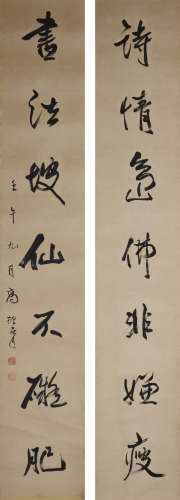 詩情島佛非嫌瘦
畫法坡仙不礙肥
壬午九月高振霄